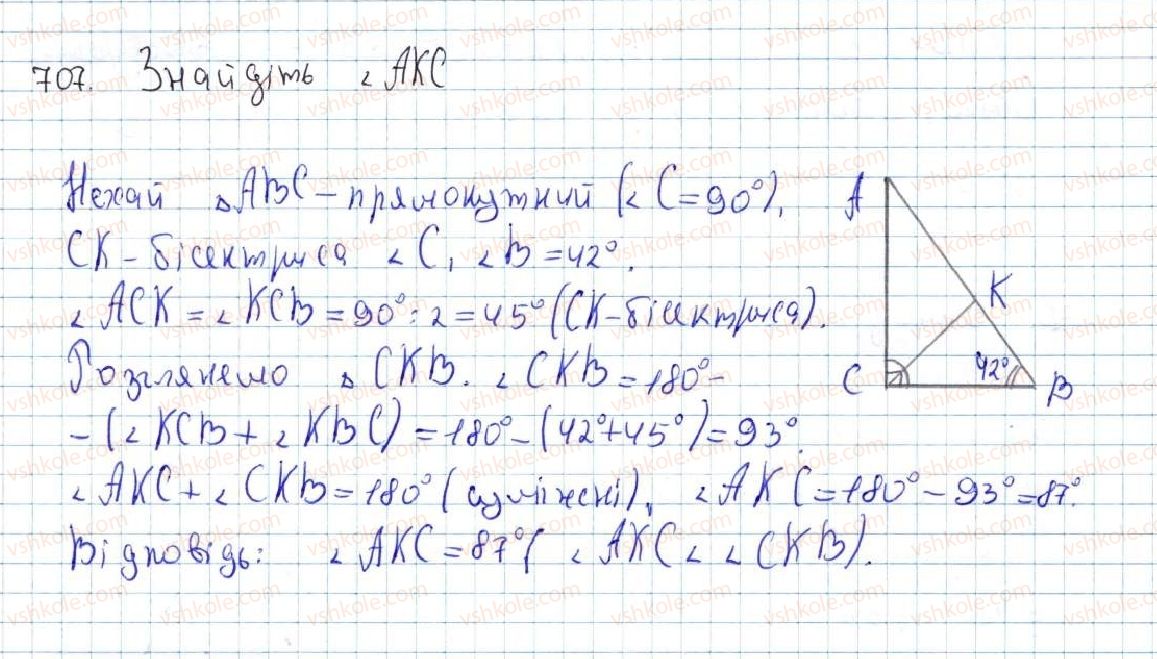 707. Знайдіть ∠AKC
Нехай △ABC – прямокутний (∠C = 90°),
CK – бісектриса ∠C, ∠B = 42°.
∠ACK = ∠KCB = 90° : 2 = 45° (CK – бісектриса).
Розглянемо △CKB. ∠CKB = 180° –
– (∠KCB + ∠KBC) = 180° – (42° + 45°) = 93°.
∠AKC + ∠CKB = 180° (суміжні), ∠AKC = 180° – 93° = 87°.
Відповідь: ∠AKC = 87° (∠AKC < ∠CKB).
A
K
C
42°
B
vshkole.com